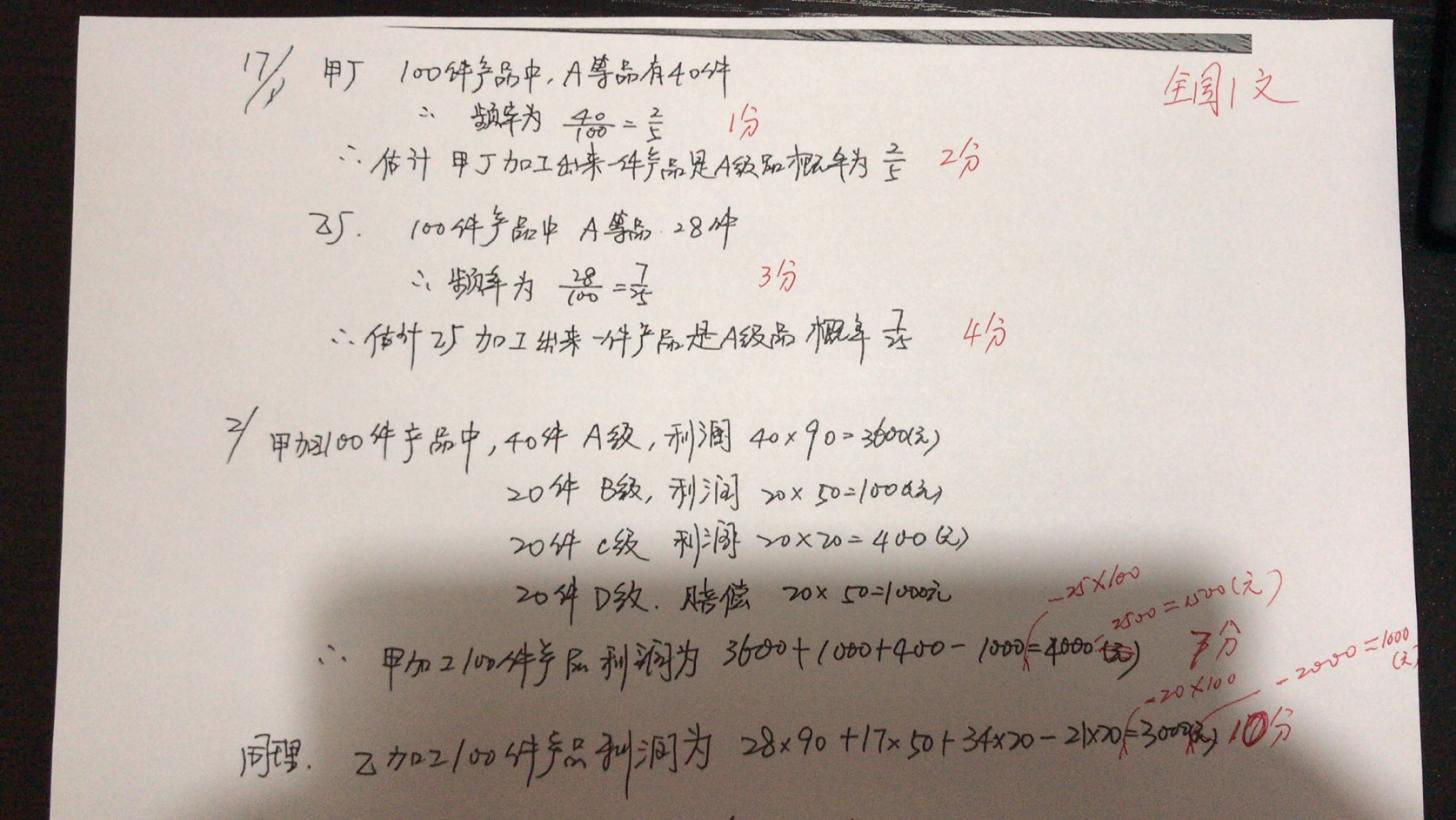 全国1文
17/1) 甲厂 100件产品中,A等品有40件
∴ 频率为 40/100 = 2/5 1分
∴ 估计 甲厂加工出来一件产品是A级品概率为 2/5 2分
乙厂. 100件产品中 A等品 28件
∴ 频率为 28/100 = 7/25 3分
∴ 估计乙厂加工出来一件产品是A级品概率 7/25 4分
2/ 甲加工100件产品中,40件 A级,利润 40×90=3600(元)
20件 B级,利润 20×50=1000(元)
20件 C级 利润 20×20=400(元)
20件 D级. 赔偿 20×50=1000元
-25×100
-2500=1500(元)
∴ 甲加工100件产品利润为 3600+1000+400-1000=4000(元) 7分
-20×100 -2000=1000(元)
同理. 乙加工100件产品利润为 28×90+17×50+34×20-21×20=3000(元) 10分